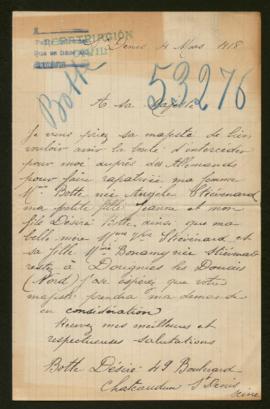 St Denis 4 Mars 1918
Botte
53276
A sa Majesté
Je viens priez sa majesté de bien
vouloir avoir la bonté d'intercéder
pour moi auprès des Allemands
pour faire rapatrier ma femme
Mme Botte née Angèle Stiévenard
ma petite fille Jeanne et mon
fils Désiré Botte, ainsi que ma
belle mère Mme Vve Stiévenard et
sa fille Mme Bonamy née Stiévenard
resté à Dourgnies les Douais
(Nord) J'ose espérer que votre
majesté prendra ma demande
en considération
Recevez mes meilleurs et
respectueuses salutations
Botte Désiré 49 Boulevard
Chateaudun St Denis
Seine